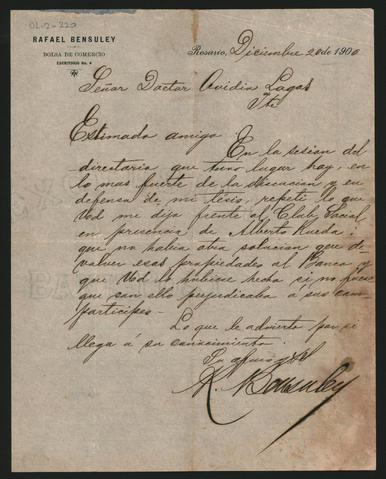 OL-2-220
RAFAEL BENSULEY
BOLSA DE COMERCIO
ESCRITORIO No. 4
Rosario, Diciembre 20 de 1900
Señor Doctor Ovidio Lagos
Pte
Estimado amigo
En la sesion del
directorio que tuvo lugar hoy, en
lo mas fuerte de la discucion y en
defensa de mi tesis, repetí lo que
Vod me dijo frente al Club Social
en presencia de Alberto Rueda:
que no habia otra solucion que de-
volver esas propiedades al Banco y
que Vod lo hubiese hecho si no fuese
que con ello perjudicaba a sus com
participes—
Lo que le advierto por si
llega á su conocimiento.
Su afmo
R. Bensuley